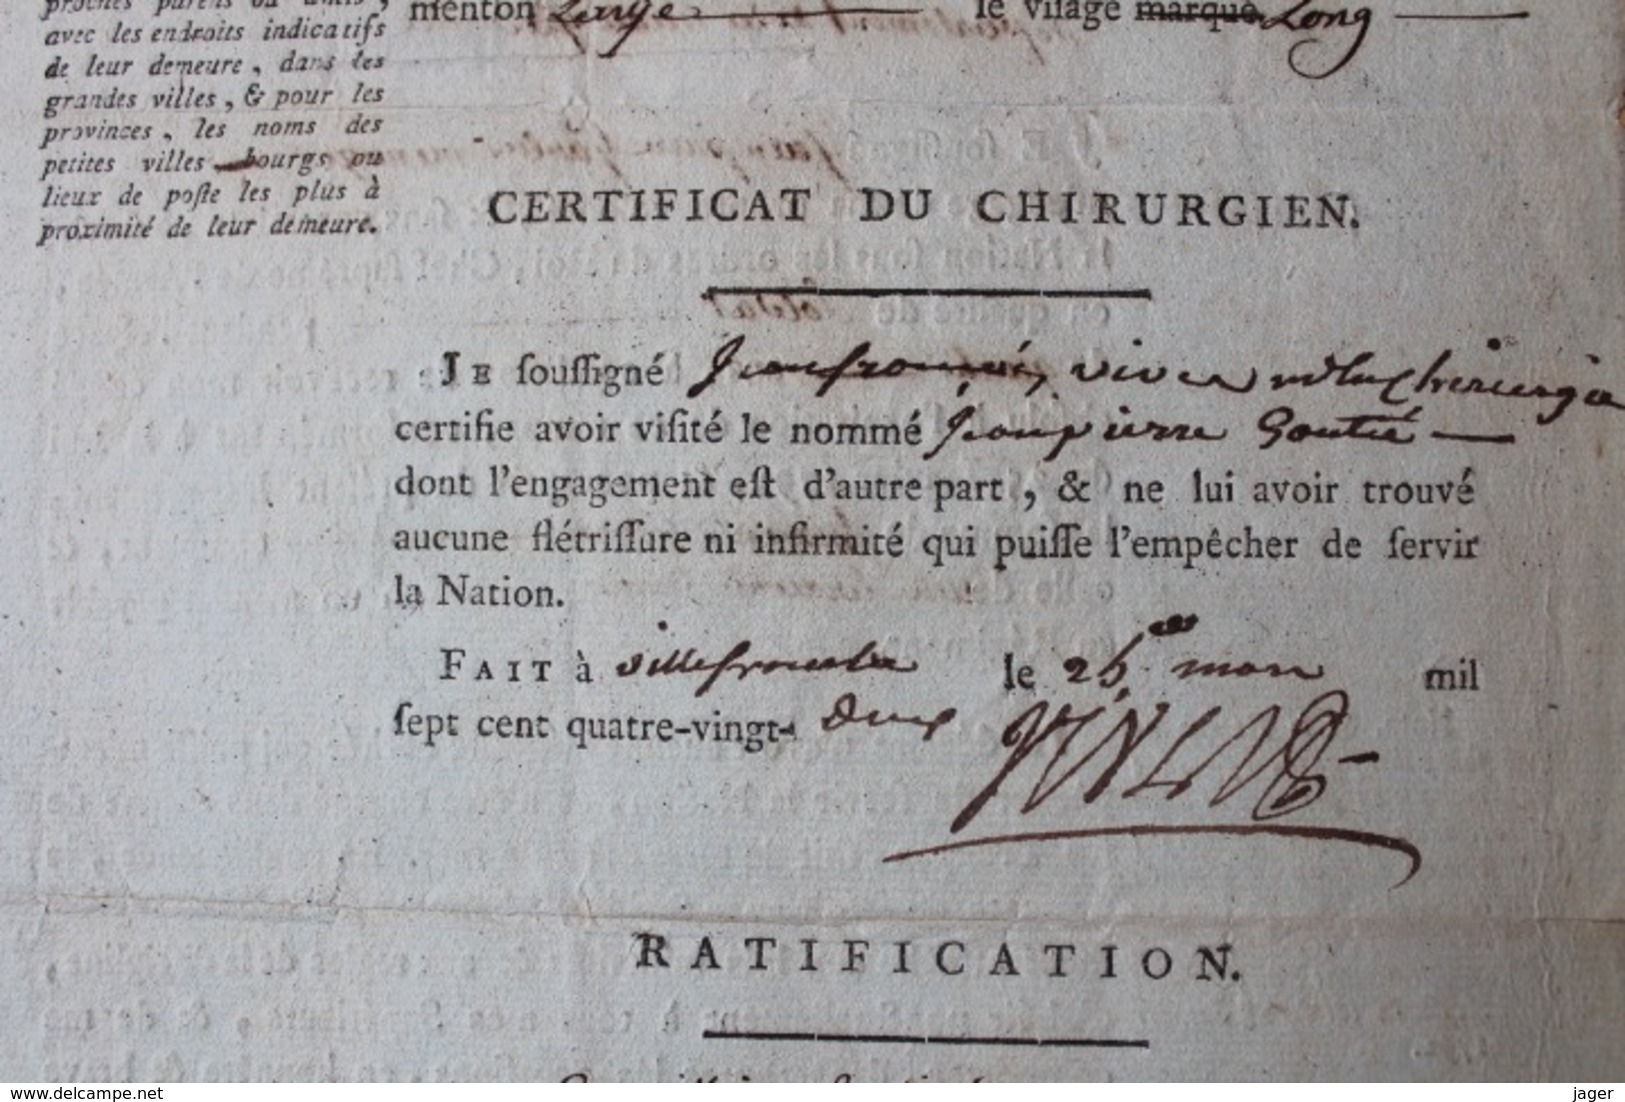 proches parens ou amis,
avec les endroits indicatifs
de leur demeure, dans les
grandes villes, & pour les
provinces, les noms des
petites villes bourgs ou
lieux de poſte les plus à
proximité de leur demeure.
menton Large le viſage marqué Long
CERTIFICAT DU CHIRURGIEN.
JE ſouſſigné chirurgien
certifie avoir viſité le nommé jean pierre Goutié
dont l'engagement eſt d'autre part, & ne lui avoir trouvé
aucune flétriſſure ni infirmité qui puiſſe l'empêcher de ſervir
la Nation.
FAIT à villefranche le 25 mars mil
ſept cent quatre-vingt- douze
RATIFICATION.
www.delcampe.net
jager